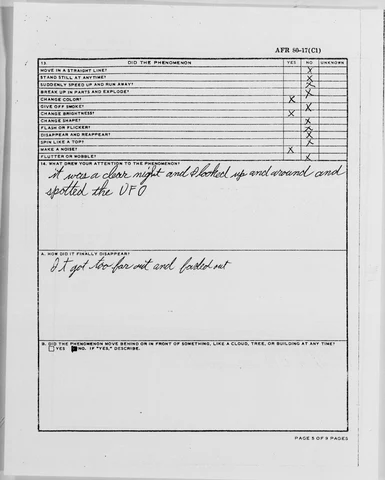 AFR 80-17(C1)
13. DID THE PHENOMENON YES NO UNKNOWN
MOVE IN A STRAIGHT LINE? X
STAND STILL AT ANYTIME? X
SUDDENLY SPEED UP AND RUN AWAY? X
BREAK UP IN PARTS AND EXPLODE? X
CHANGE COLOR? X
GIVE OFF SMOKE? X
CHANGE BRIGHTNESS? X
CHANGE SHAPE? X
FLASH OR FLICKER? X
DISAPPEAR AND REAPPEAR? X
SPIN LIKE A TOP? X
MAKE A NOISE? X
FLUTTER OR WOBBLE? X
14. WHAT DREW YOUR ATTENTION TO THE PHENOMENON?
it was a clear night and I looked up and around and
spotted the UFO
A. HOW DID IT FINALLY DISAPPEAR?
It got too far out and faded out
B. DID THE PHENOMENON MOVE BEHIND OR IN FRONT OF SOMETHING, LIKE A CLOUD, TREE, OR BUILDING AT ANY TIME?
YES NO. IF "YES," DESCRIBE.
PAGE 5 OF 9 PAGES